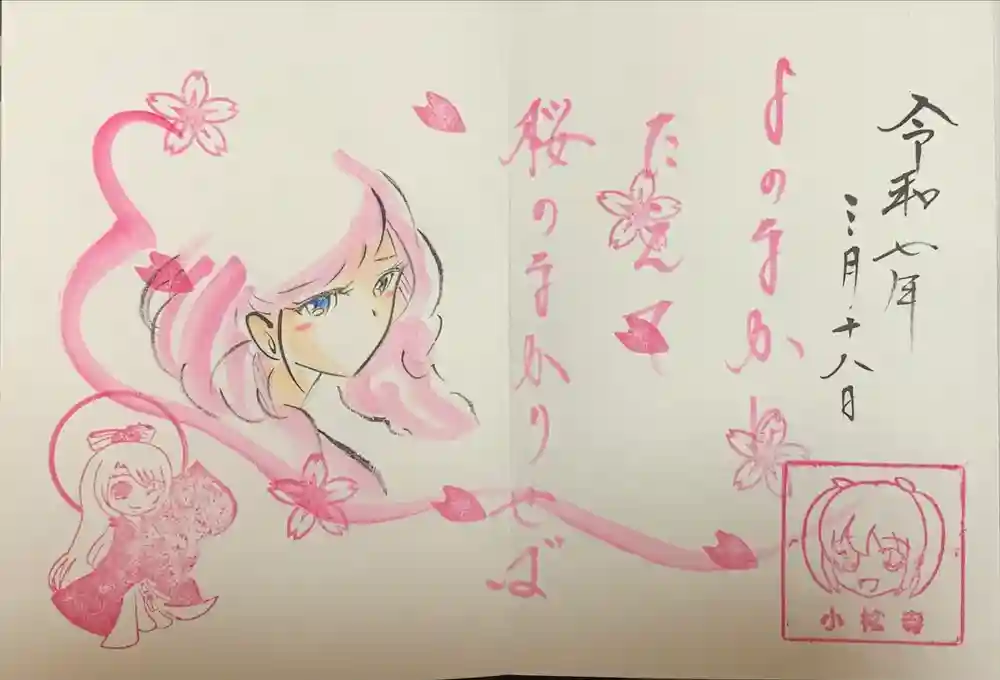 令和七年
三月十八日
よのなかに
たえて
桜のなかりせば
小松寺